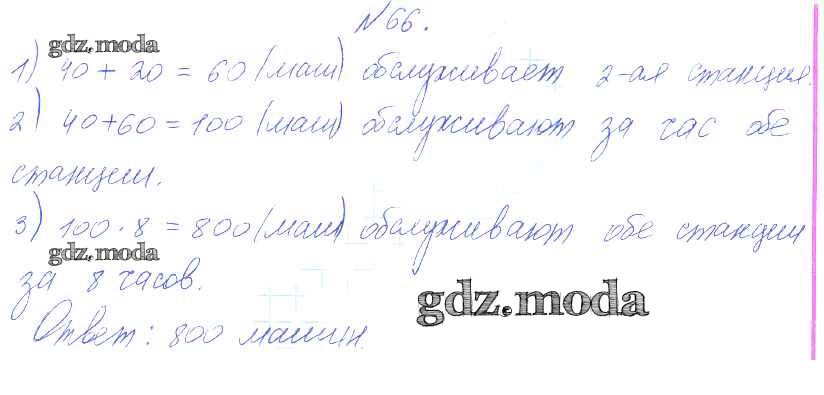 №66.
gdz.moda
1) 40 + 20 = 60 (маш) обслуживает 2-ая станция.
2) 40+60=100 (маш) обслуживают за час обе
станции.
3) 100·8=800 (маш) обслуживают обе станции
gdz.moda
за 8 часов.
gdz.moda
Ответ: 800 машин.